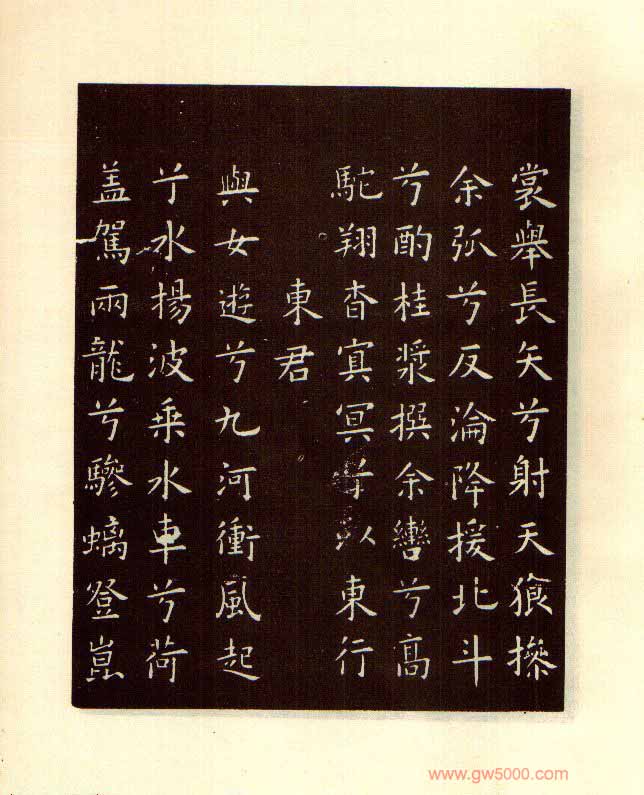 裳舉長矢兮射天狼操
余弧兮反淪降援北斗
兮酌桂漿撰余轡兮高
駝翔杳冥冥兮以東行
東君
與女遊兮九河衝風起
兮水揚波乘水車兮荷
盖駕兩龍兮驂螭登崑
www.gw5000.com